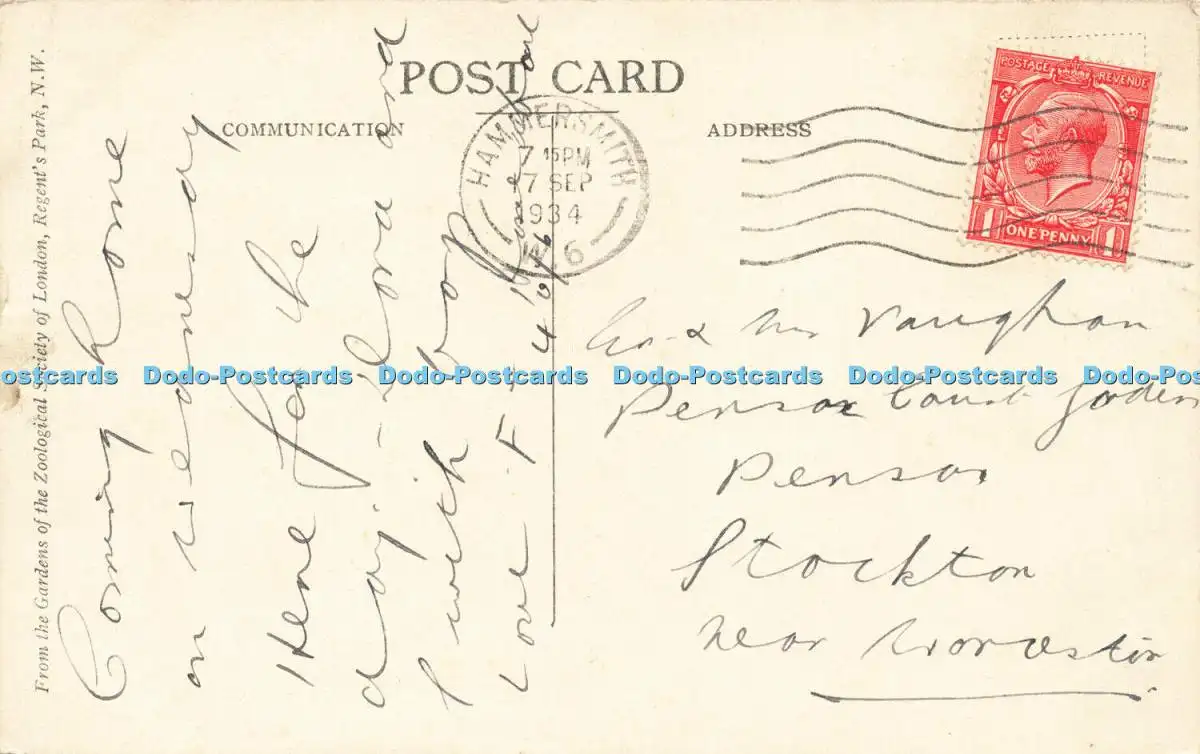 From the Gardens of the Zoological Society of London, Regent's Park, N.W.
POST CARD
COMMUNICATION
ADDRESS
HAMMERSMITH
7 15PM
17 SEP
1934
W.6
POSTAGE REVENUE
1 ONE PENNY 1
Coming home
on Wednesday
Here for the
day - and
with boy
Love F
& Mrs Vaughan
Pensax Court
Pensax
Stockton
near Worcester
Dodo-Postcards Dodo-Postcards Dodo-Postcards Dodo-Postcards Dodo-Postcards Dodo-Postcards